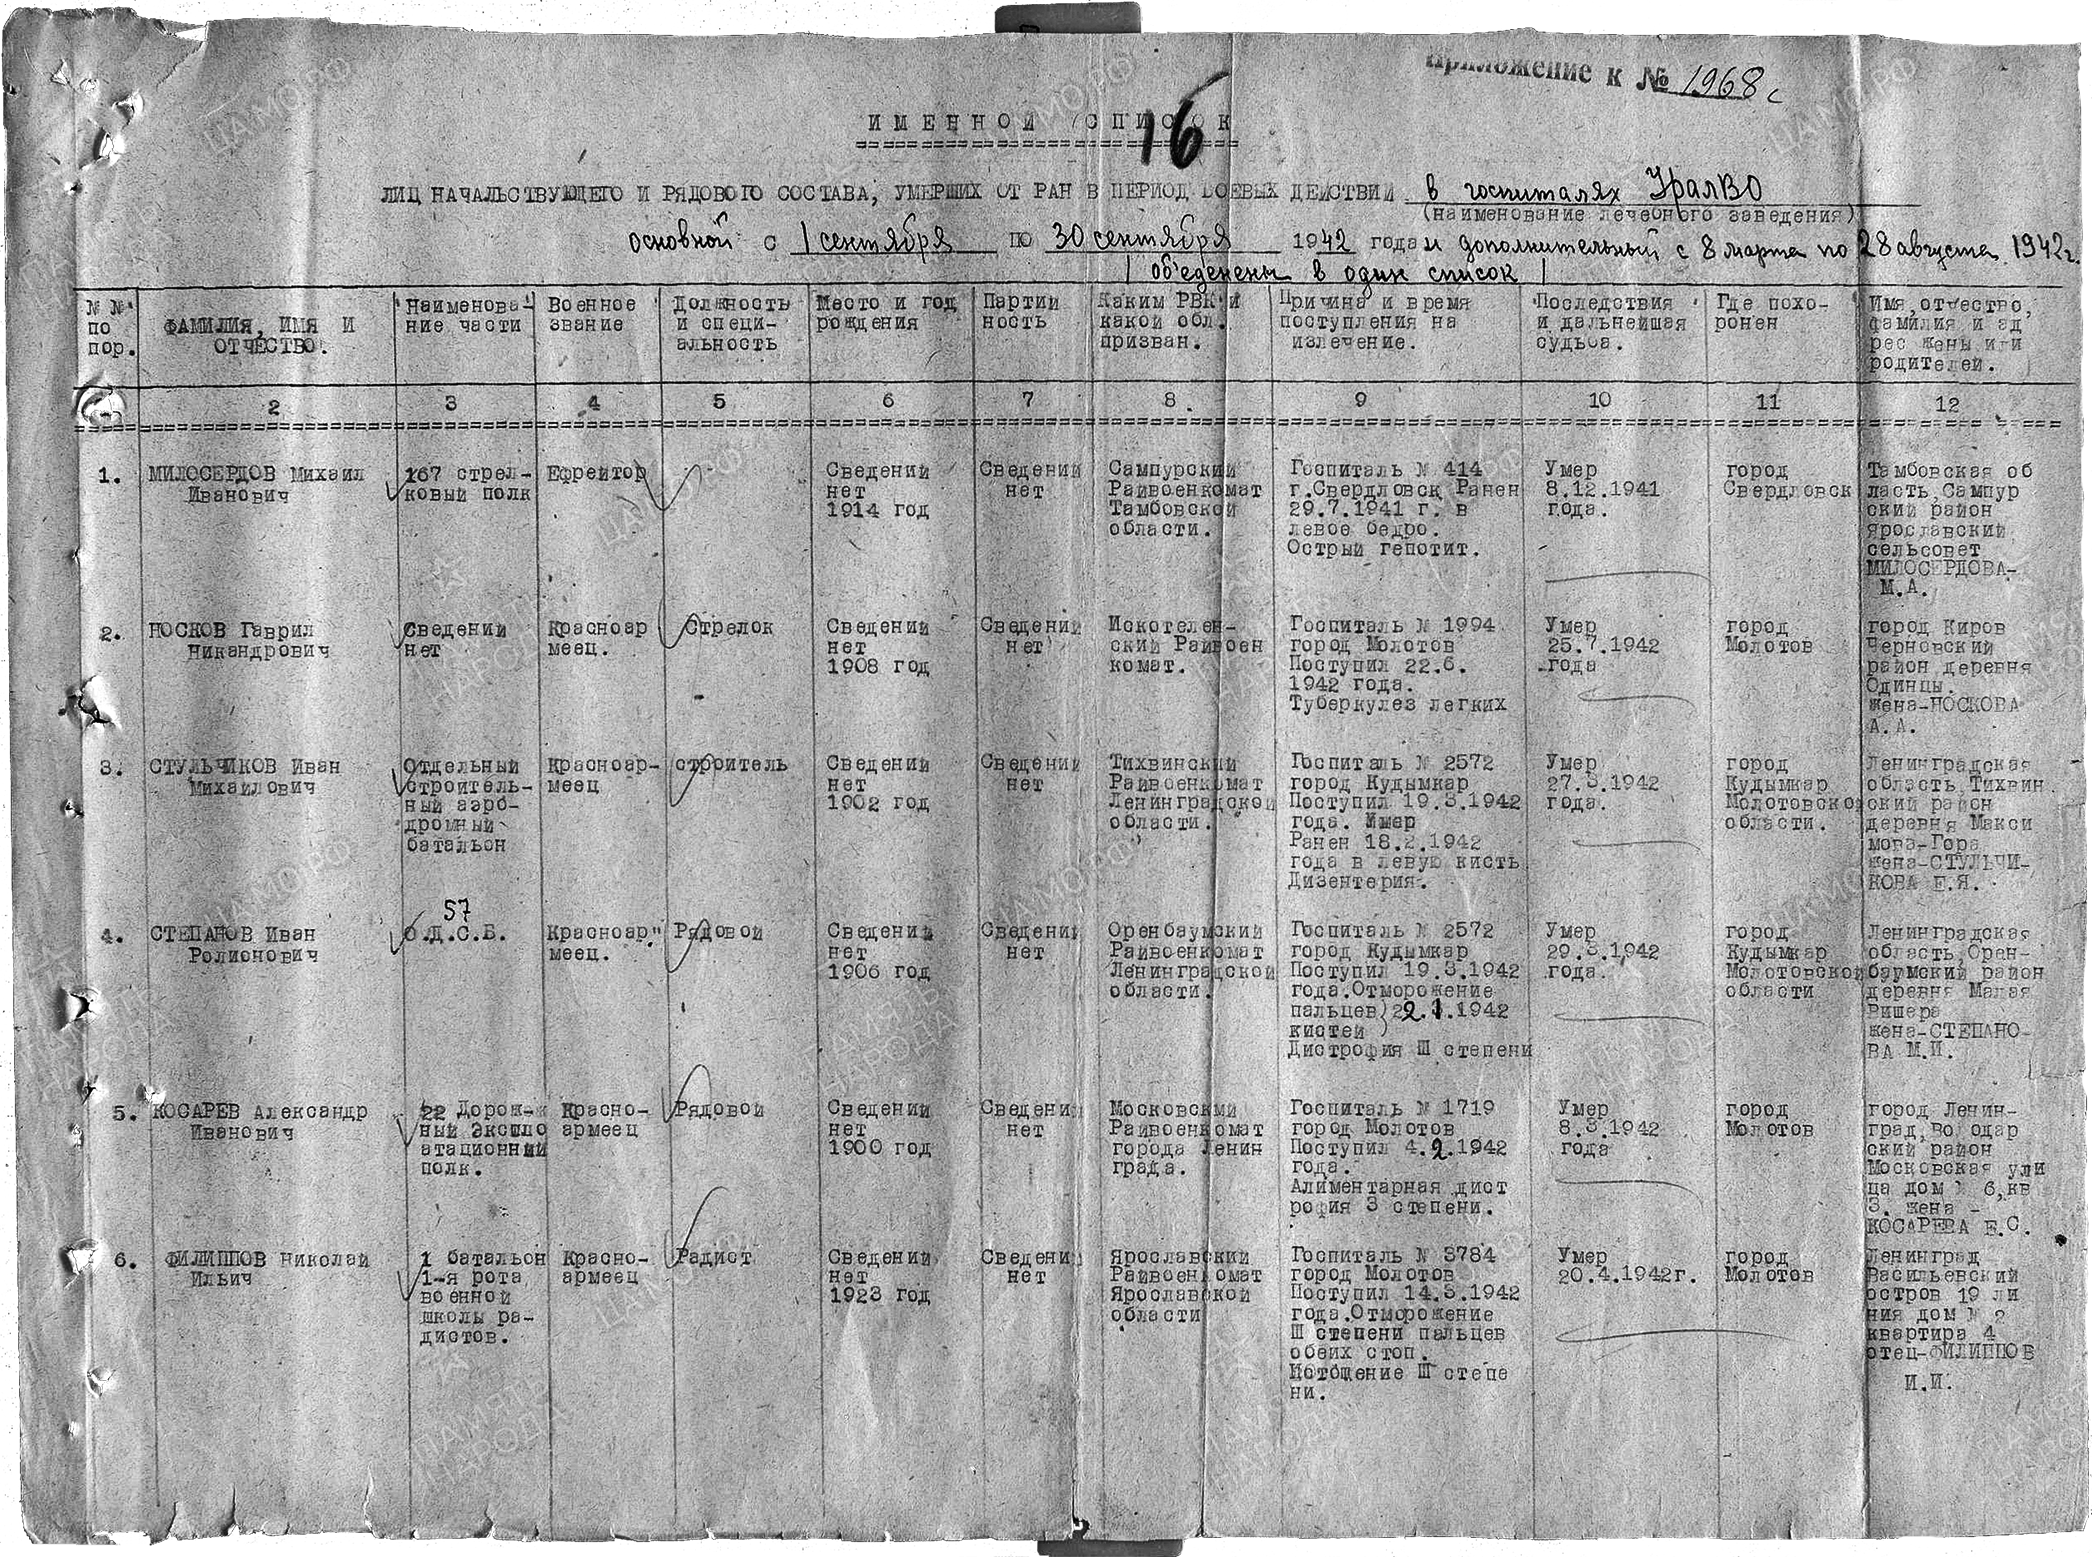 Приложение к № 1968с
16
ИМЕННОЙ СПИСОК
ЛИЦ НАЧАЛЬСТВУЮЩЕГО И РЯДОВОГО СОСТАВА, УМЕРШИХ ОТ РАН В ПЕРИОД БОЕВЫХ ДЕЙСТВИЙ в госпиталях УралВО
(наименование лечебного заведения)
основной с 1 сентября по 30 сентября 1942 года и дополнительный с 8 марта по 28 августа 1942г.
/ об'еденены в один список /
№ №
по
пор.
ФАМИЛИЯ, ИМЯ И
ОТЧЕСТВО.
Наименова-
ние части
Военное
звание
Должность
и специ-
альность
Место и год
рождения
Партий
ность
Каким РВК и
какой обл.
призван.
Причина и время
поступления на
излечение.
Последствия
и дальнейшая
судьба.
Где похо-
ронен
Имя, отчество,
фамилия и ад
рес жены или
родителей.
2 3 4 5 6 7 8 9 10 11 12
1.
МИЛОСЕРДОВ Михаил
Иванович
167 стрел-
ковый полк
Ефрейтор
Сведений
нет
1914 год
Сведений
нет
Сампурский
Райвоенкомат
Тамбовской
области.
Госпиталь № 414
г.Свердловск Ранен
29.7.1941 г. в
левое бедро.
Острый гепотит.
Умер
8.12.1941
года.
город
Свердловск
Тамбовская об
ласть, Сампур
ский район
Ярославский
сельсовет
МИЛОСЕРДОВА-
М.А.
2.
НОСКОВ Гаврил
Никандрович
Сведений
нет
Красноар
меец.
Стрелок
Сведений
нет
1908 год
Сведений
нет
Искотелен-
ский Райвоен
комат.
Госпиталь № 1994
город Молотов
Поступил 22.6.
1942 года.
Туберкулез легких
Умер
25.7.1942
года
город
Молотов
город Киров
Черновский
район деревня
Одинцы.
жена-НОСКОВА
А.А.
3.
СТУЛЬЧИКОВ Иван
Михайлович
Отдельный
строитель-
ный аэро-
дромный
батальон
Красноар-
меец
строитель
Сведений
нет
1902 год
Сведений
нет
Тихвинский
Райвоенкомат
Ленинградской
области.
Госпиталь № 2572
город Кудымкар
Поступил 19.3.1942
года. Имер
Ранен 18.2.1942
года в левую кисть
Дизентерия.
Умер
27.3.1942
года.
город
Кудымкар
Молотовско
области.
Ленинградская
область Тихвин
ский район
деревня Макси
мова-Гора
жена-СТУЛЬЧИ-
КОВА Е.Я.
4.
СТЕПАНОВ Иван
Ролионович
57
О.Д.С.Б.
Красноар
меец.
Рядовой
Сведений
нет
1906 год
Сведений
нет
Оренбаумский
Райвоенкомат
Ленинградской
области.
Госпиталь № 2572
город Кудымкар
Поступил 19.3.1942
года.Отморожение
пальцев) 22.1.1942
кистей )
Дистрофия Ш степени
Умер
29.3.1942
года.
город
Кудымкар
Молотовской
области
Ленинградская
область Орен-
баумский район
деревня Малая
Вишера
жена-СТЕПАНО-
ВА М.И.
5.
КОСАРЕВ Александр
Иванович
22 Дорож-
ный Экспло
атационный
полк.
Красно-
армеец
Рядовой
Сведений
нет
1900 год
Сведений
нет
Московский
Райвоенкомат
города Ленин
града.
Госпиталь № 1719
город Молотов
Поступил 4.2.1942
года.
Алиментарная дист
рофия 3 степени.
Умер
8.3.1942
года
город
Молотов
город Ленин-
град, Володар
ский район
Московская ули
ца дом № 6, кв
3. жена -
КОСАРЕВА Е.С.
6.
ФИЛИППОВ Николай
Ильич
1 батальон
1-я рота
военной
школы ра-
дистов.
Красно-
армеец
Радист
Сведений
нет
1923 год
Сведений
нет
Ярославский
Райвоенкомат
Ярославской
области
Госпиталь № 3784
город Молотов
Поступил 14.3.1942
года.Отморожение
Ш степени пальцев
обеих стоп.
Истощение Ш степе
ни.
Умер
20.4.1942г.
город
Молотов
Ленинград
Васильевский
остров 19 ли
ния дом № 2
квартира 4
отец-ФИЛИППОВ
И.И.